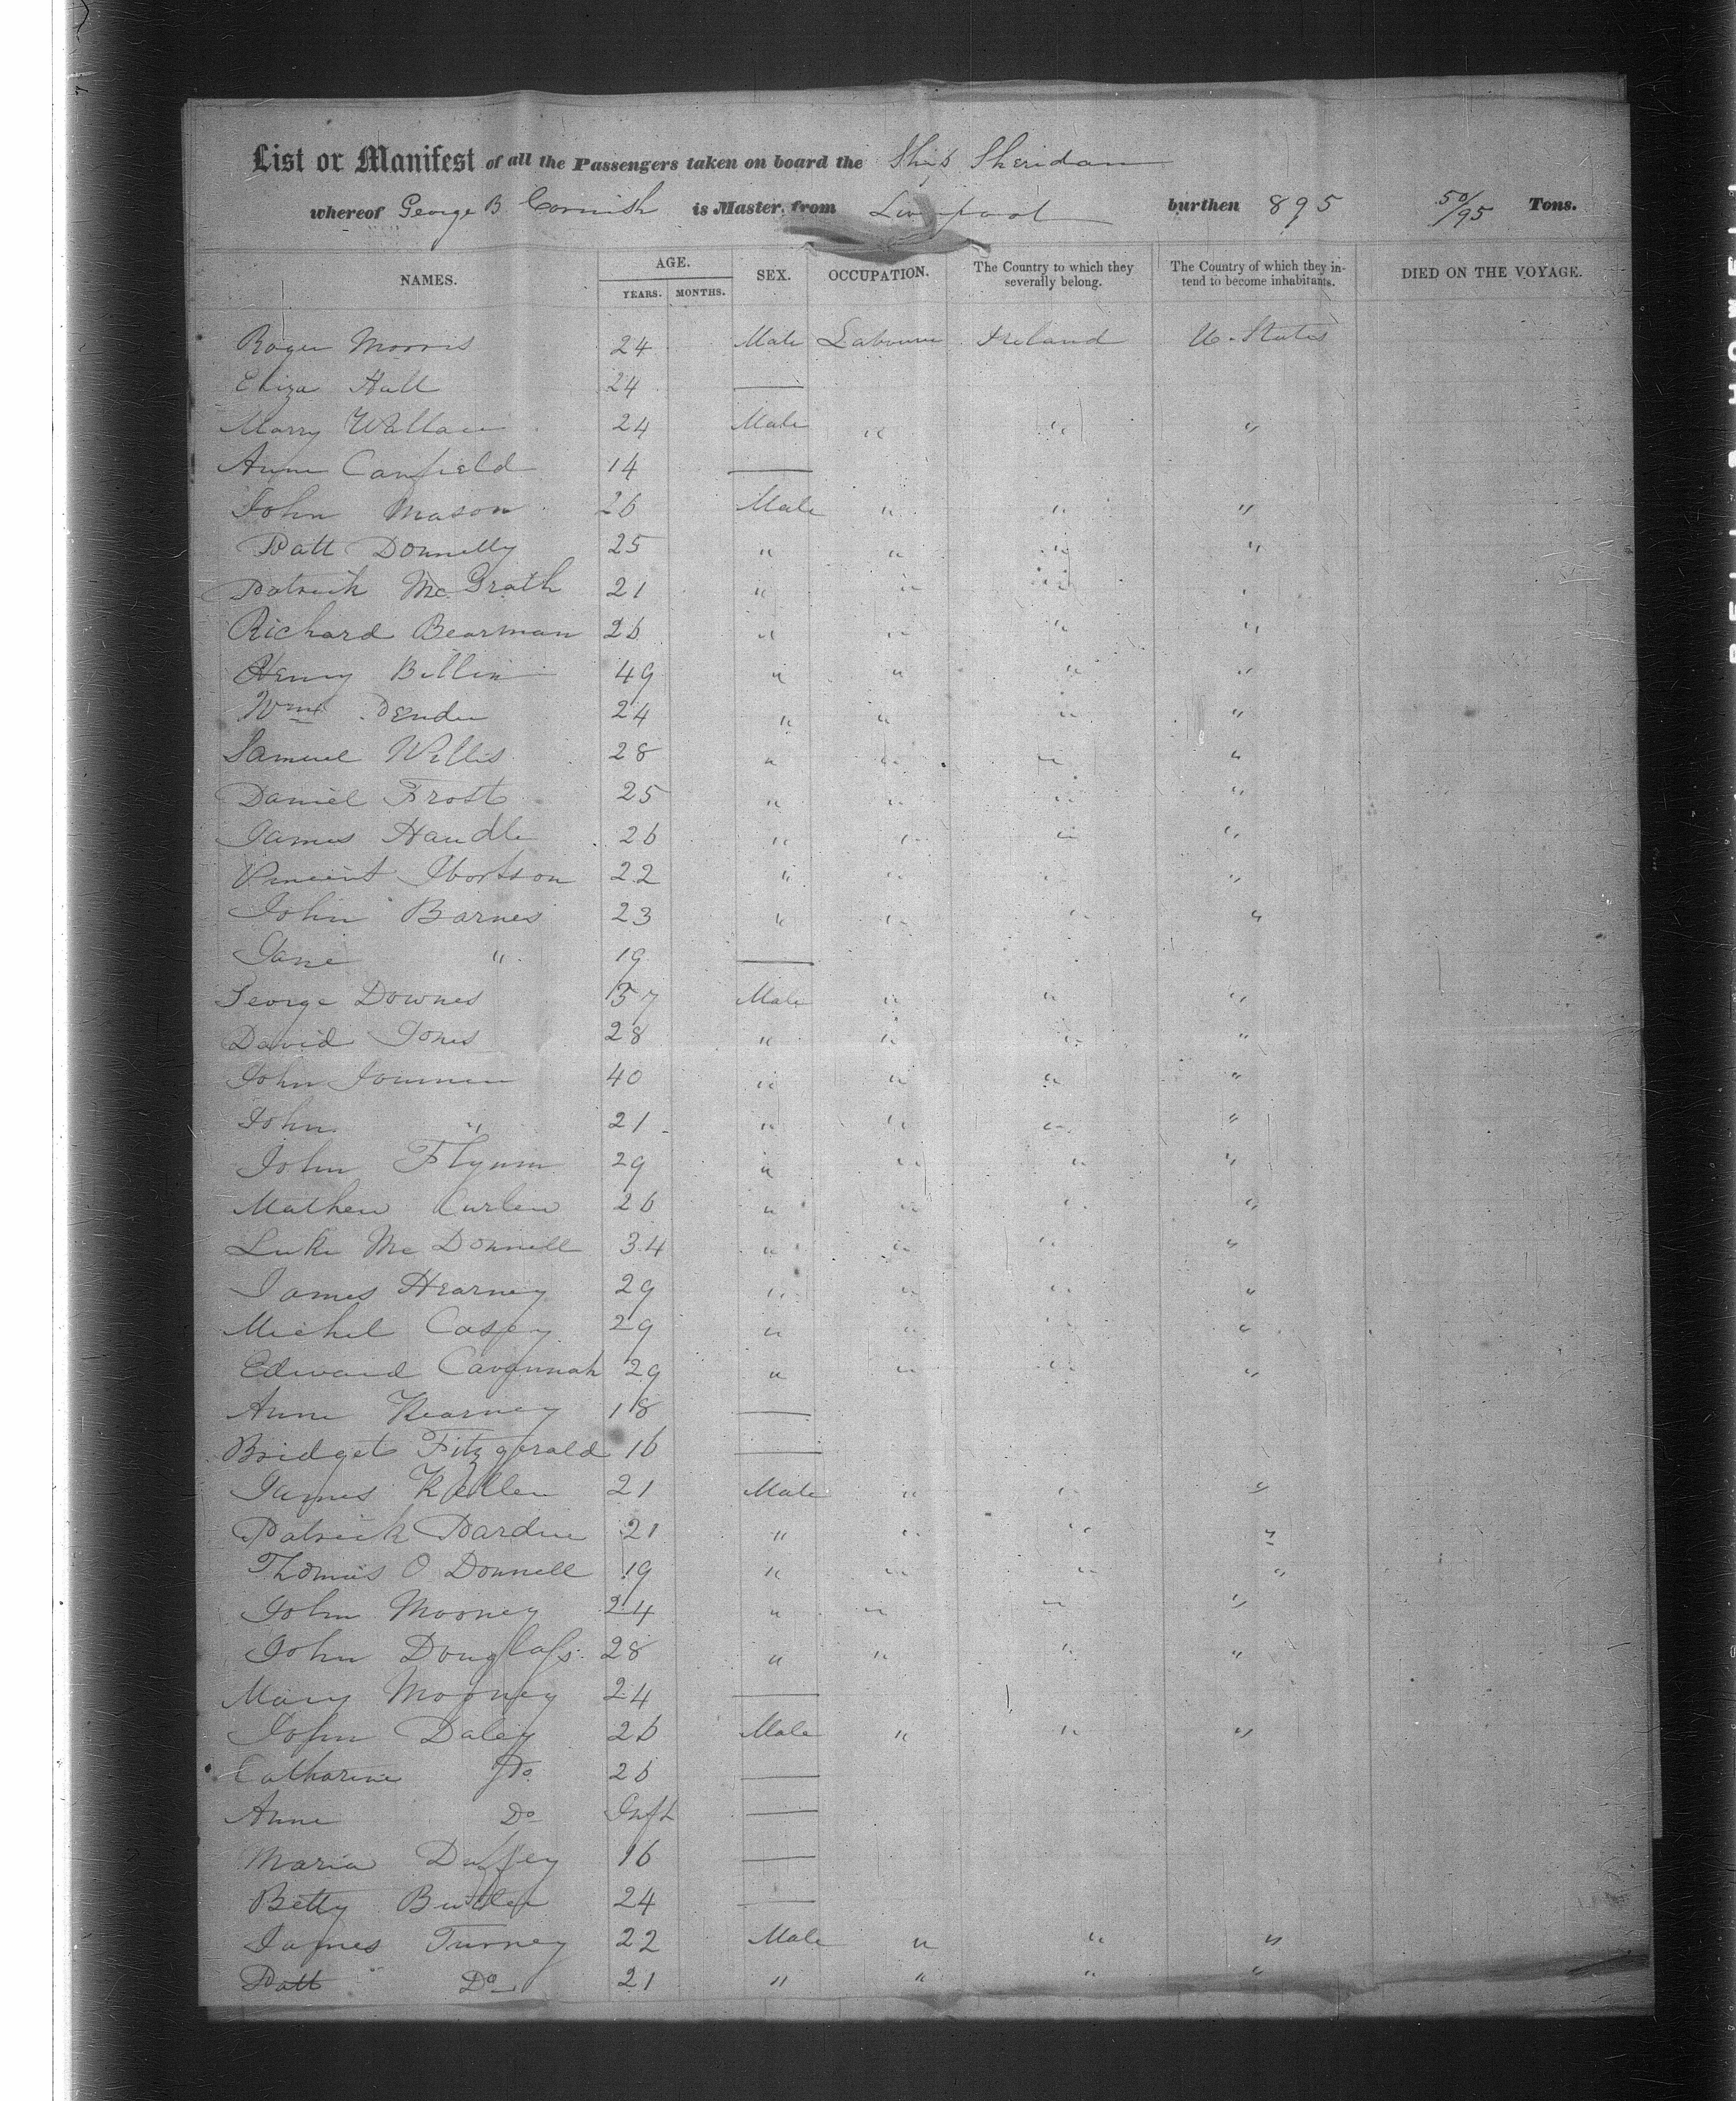 List or Manifest of all the Passengers taken on board the Ship Sheridan
whereof George B Cornish is Master, from Liverpool burthen 895 50/95 Tons.
NAMES. AGE. YEARS. MONTHS. SEX. OCCUPATION. The Country to which they severally belong. The Country of which they intend to become inhabitants. DIED ON THE VOYAGE.
Roger Morris 24 Male Labourer Ireland U. States
Eliza Hall 24 —
Marry Wallace 24 Male " " "
Anne Canfield 14 —
John Mason 26 Male " " "
Patt Donnelly 25 " " " "
Patrick McGrath 21 " " " "
Richard Bearman 26 " " " "
Henry Billin 49 " " " "
Wm 24 " " " "
Samuel Willis 28 " " " "
Daniel Frost 25 " " " "
James Handle 26 " " " "
Vincent Ibortson 22 " " " "
John Barnes 23 " " " "
Jane " 19 —
George Downes 57 Male " " "
David Jones 28 " " " "
John 40 " " " "
John " 21 " " " "
John Flynn 29 " " " "
Mathew Curlew 26 " " " "
Luke McDonnell 34 " " " "
James Hearney 29 " " " "
Michel Casey 29 " " " "
Edward Cavannah 29 " " " "
Anne Kearney 18 —
Bridget Fitzgerald 16 —
James Kellen 21 Male " " "
Patrick Pardue 21 " " " "
Thomas O Donnell 19 " " " "
John Mooney 24 " " " "
John Douglass 28 " " " "
Mary Mooney 24 —
John Daley 26 Male " " "
Catharine Do 26 —
Anne Do Inft —
Maria Duffey 16 —
Betty Butler 24 —
James Turney 22 Male " " "
Patt Do 21 " " " "